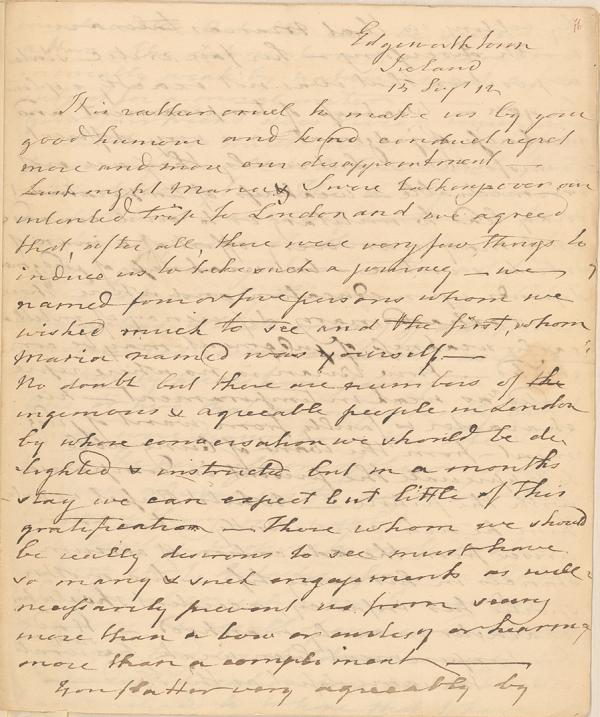 76
Edgeworthtown
Ireland
15 Sept 12
It is rather cruel to make us by your
good humour and kind conduct regret
more and more our disappointment —
Last night Maria & I were talking over our
intended trip to London and we agreed
that, after all, there were very few things to
induce us to take such a journey — we
named four or five persons whom we
wished much to see and the first, whom
Maria named was yourself —
No doubt but there are numbers of the
ingenious & agreeable people in London
by whose conversation we should be de-
lighted & instructed but in a months
stay we can expect but little of this
gratification — Those whom we should
be really desirous to see must have
so many & such engagements as will
necessarily prevent us from seeing
more than a bow or curtesy or hearing
more than a compliment —
You flatter very agreeably by